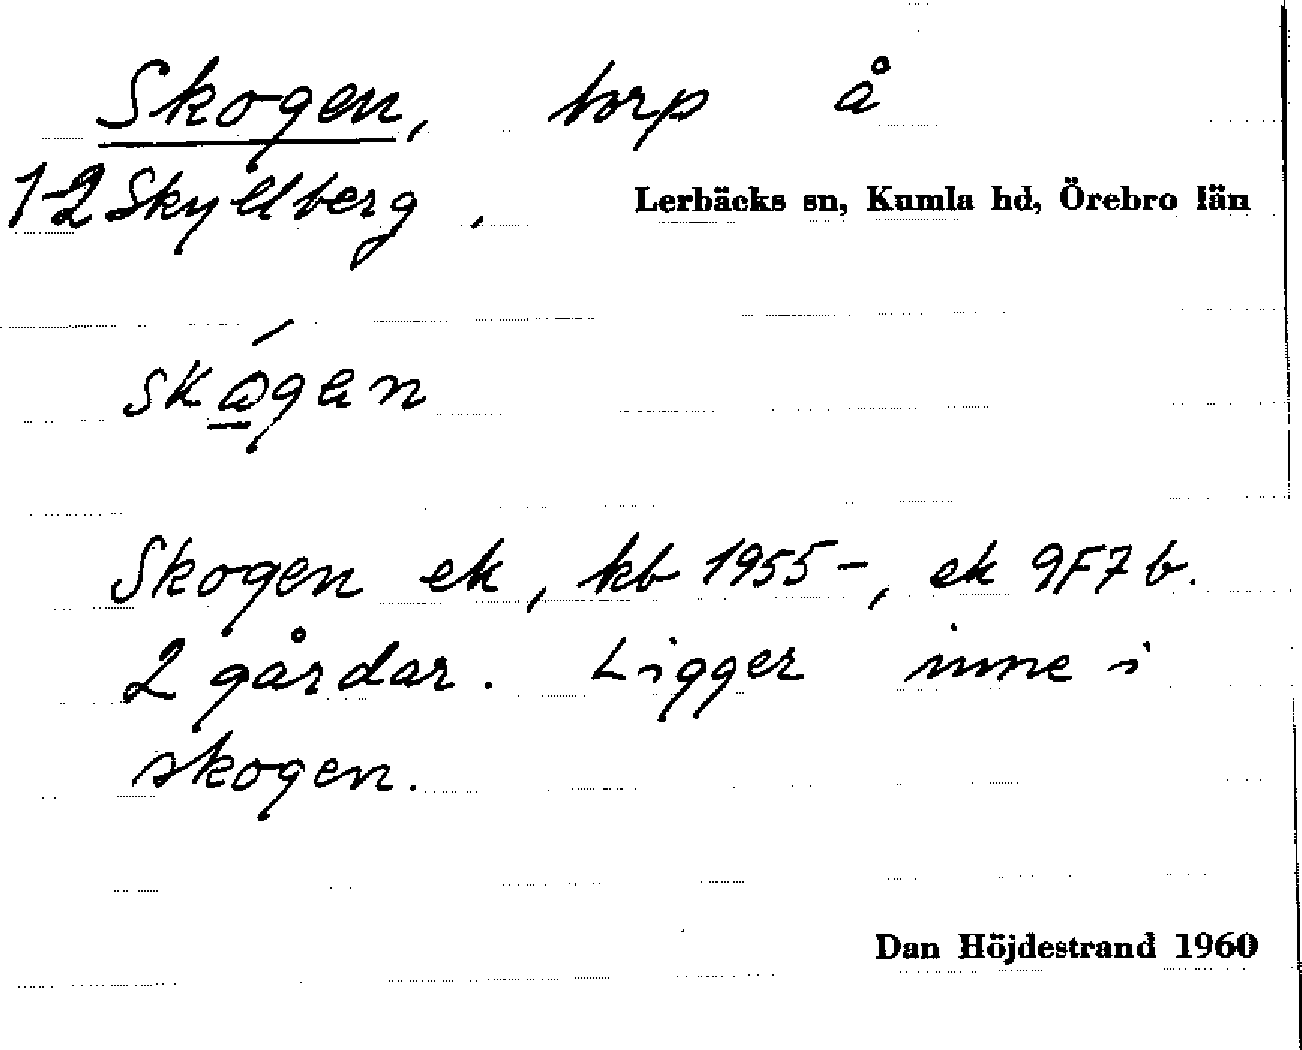 Skogen, torp å
1-2 Skyllberg. Lerbäcks sn, Kumla hd, Örebro län
Skogen ek, kb 1955-, ek 9F7b.
2 gårdar. Ligger inne i
skogen.
Dan Höjdestrand 1960